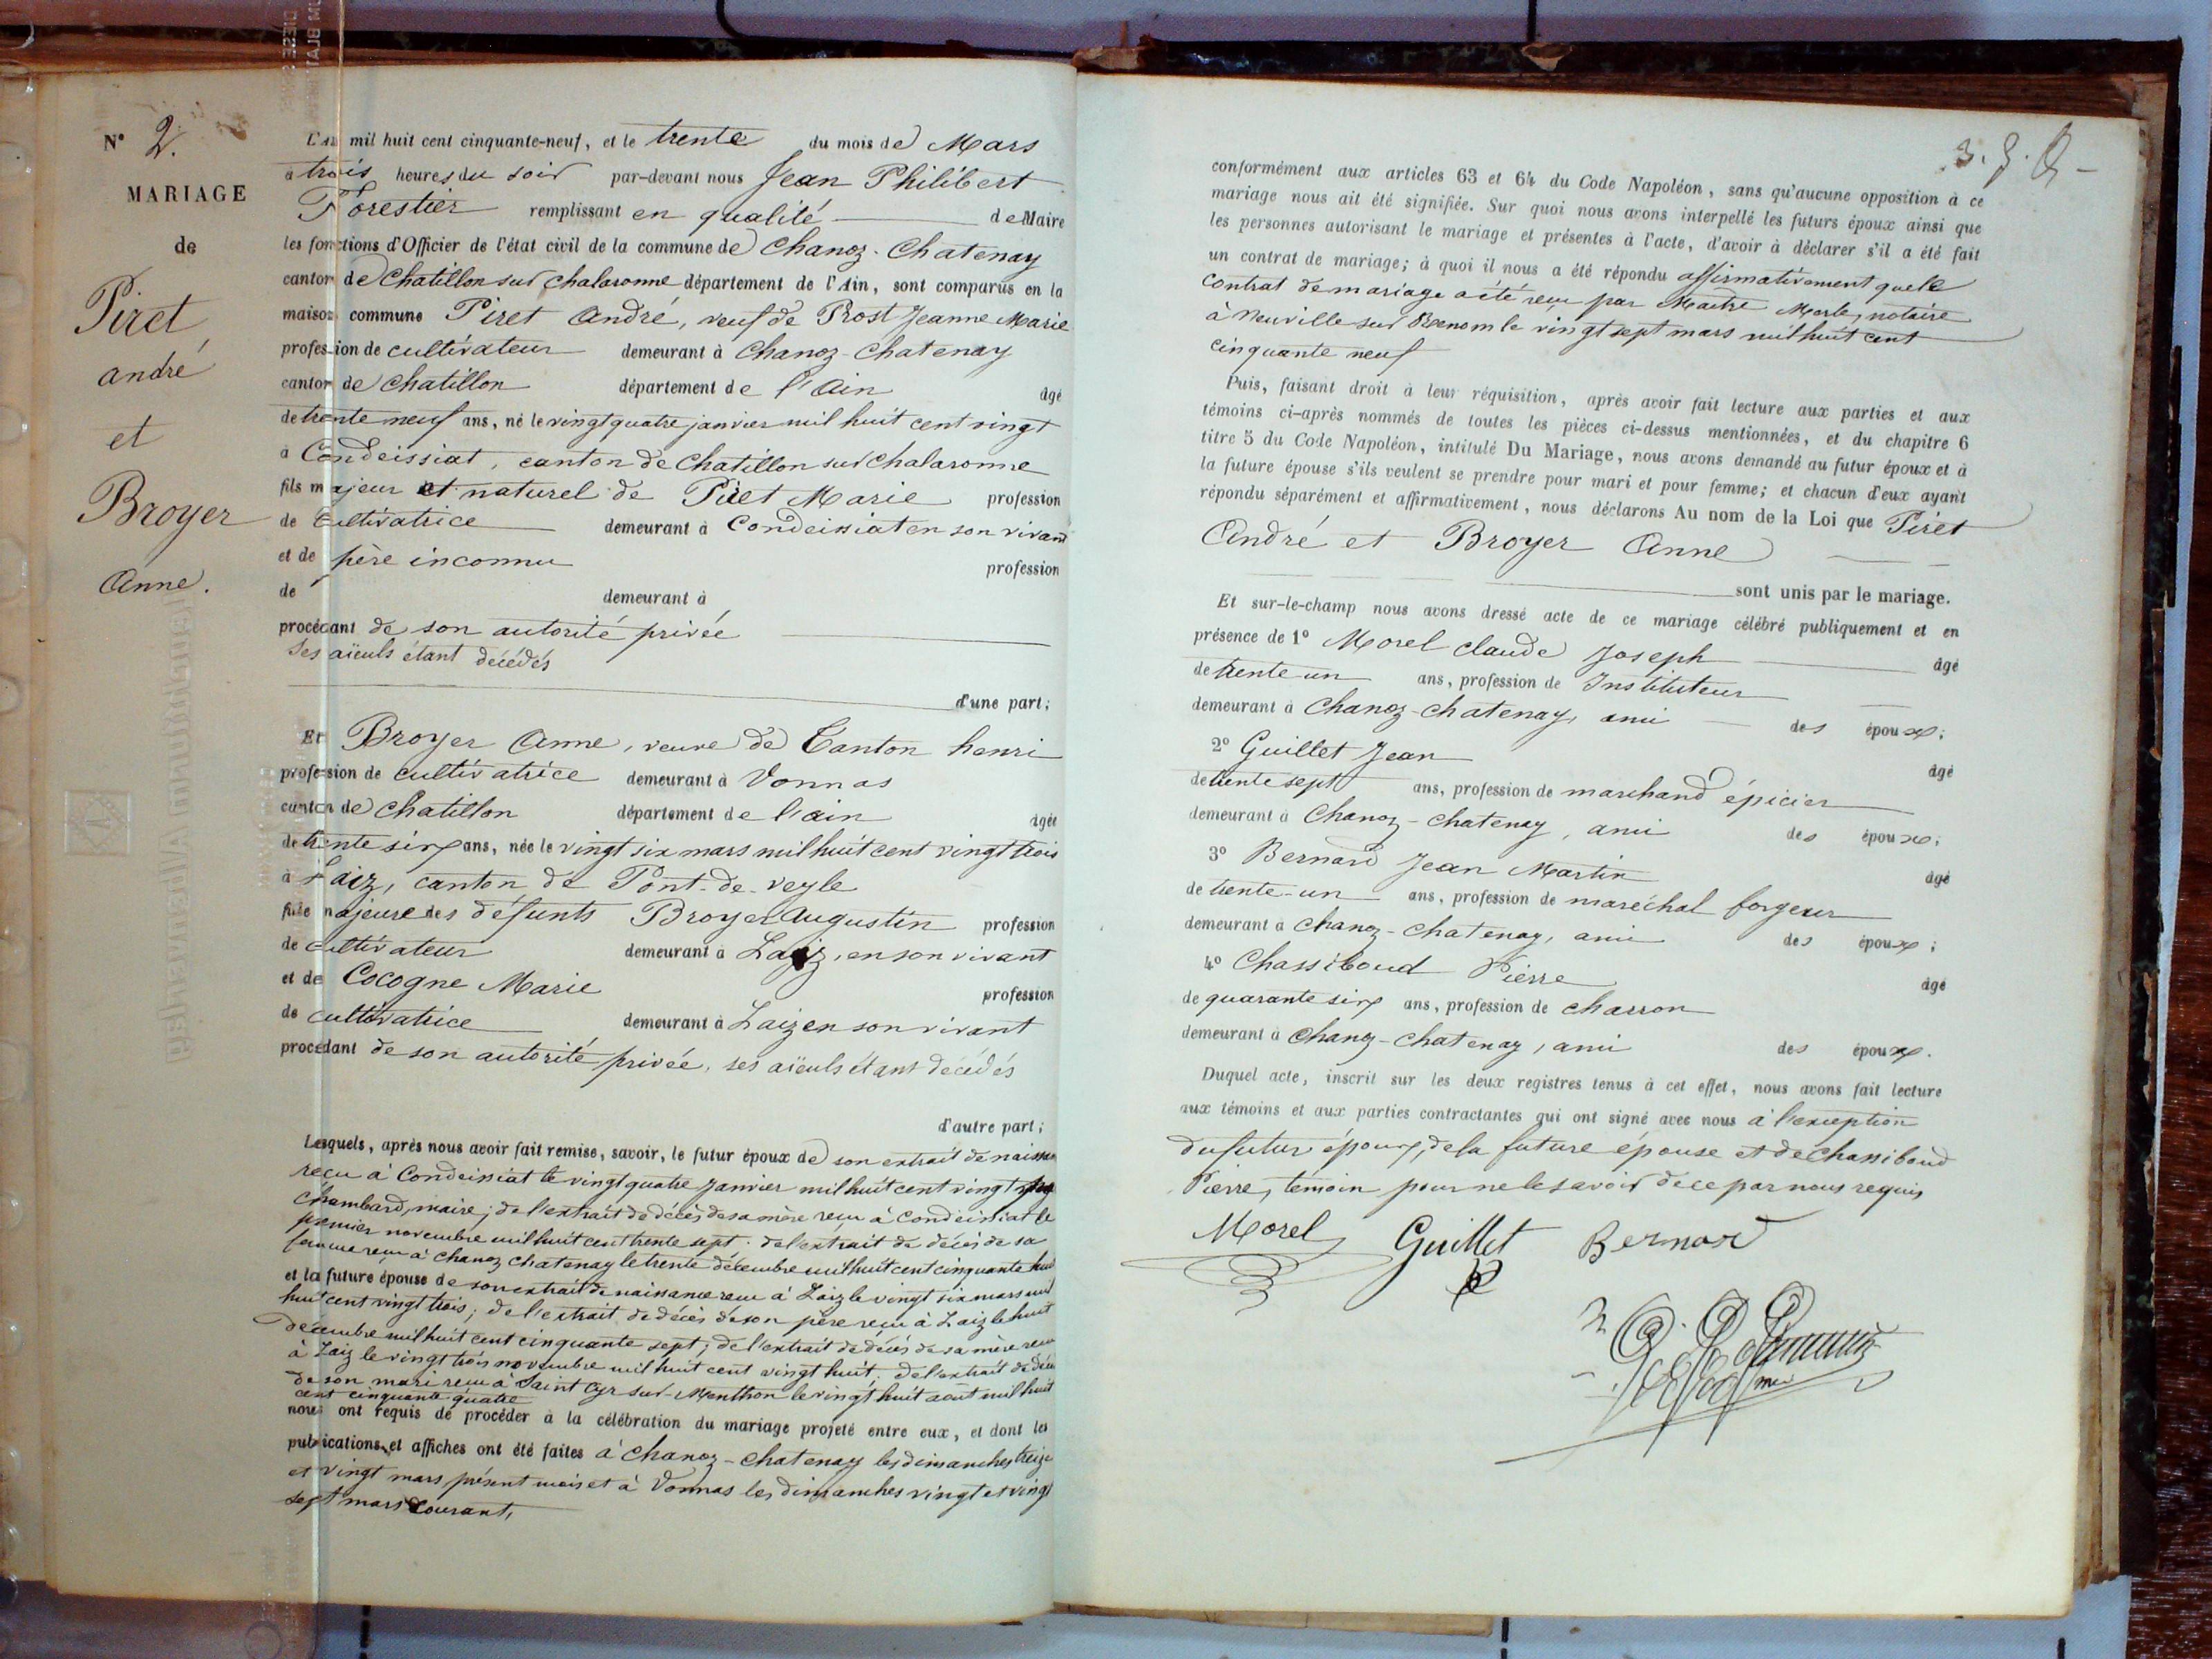 N° 2.
MARIAGE
de
Piret
andré
et
Broyer
Anne.
L'An mil huit cent cinquante-neuf, et le trente du mois de Mars
à trois heures du soir par-devant nous Jean Philibert
Forestier remplissant en qualité de Maire
les fonctions d'Officier de l'état civil de la commune de Chanoz-Chatenay
canton de Chatillon sur Chalaronne département de l'Ain, sont comparus en la
maison commune Piret André, veuf de Prost Jeanne Marie
profession de cultivateur demeurant à Chanoz-Chatenay
canton de Chatillon département de l'Ain âgé
de trente neuf ans, né le vingt quatre janvier mil huit cent vingt
à Condeissiat, canton de Chatillon sur Chalaronne
fils majeur et naturel de Piret Marie profession
de cultivatrice demeurant à Condeissiat en son vivant
et de père inconnu profession
de demeurant à
procédant de son autorité privée
Ses aïeuls étant décédés
d'une part;
Et Broyer Anne, veuve de Canton henri
profession de cultivatrice demeurant à Vonnas
canton de Chatillon département de l'ain âgée
de trente six ans, née le vingt six mars mil huit cent vingt trois
à Laiz, canton de Pont-de-veyle
fille majeure des défunts Broyer Augustin profession
de cultivateur demeurant à Laiz, en son vivant
et de Cocogne Marie profession
de cultivatrice demeurant à Laiz en son vivant
procédant de son autorité privée, ses aïeuls étant décédés
d'autre part;
Lesquels, après nous avoir fait remise, savoir, le futur époux de son extrait de naissance
reçu à Condeissiat le vingt quatre Janvier mil huit cent vingt
Chambard, maire; de l'extrait de décès de sa mère reçu à Condeissiat le
premier novembre mil huit cent trente sept. de l'extrait de décès de sa
femme reçu à Chanoz Chatenay le trente décembre mil huit cent cinquante huit
et la future épouse de son extrait de naissance reçu à Laiz le vingt six mars mil
huit cent vingt trois; de l'extrait de décès de son père reçu à Laiz le huit
décembre mil huit cent cinquante sept; de l'extrait de décès de sa mère reçu
à Laiz le vingt trois novembre mil huit cent vingt huit; de l'extrait de décès
de son mari reçu à Saint Cyr sur Menthon le vingt huit août mil huit
cent cinquante quatre
nous ont requis de procéder à la célébration du mariage projeté entre eux, et dont les
publications et affiches ont été faites à Chanoz-Chatenay les dimanches treize
et vingt mars, présent mois et à Vonnas les dimanches vingt et vingt
sept mars courant,
conformément aux articles 63 et 64 du Code Napoléon, sans qu'aucune opposition à ce
mariage nous ait été signifiée. Sur quoi nous avons interpellé les futurs époux ainsi que
les personnes autorisant le mariage et présentes à l'acte, d'avoir à déclarer s'il a été fait
un contrat de mariage; à quoi il nous a été répondu affirmativement que le
Contrat de mariage a été reçu par Maître Morle, notaire
à Neuville sur Renom le vingt sept mars mil huit cent
cinquante neuf
Puis, faisant droit à leur réquisition, après avoir fait lecture aux parties et aux
témoins ci-après nommés de toutes les pièces ci-dessus mentionnées, et du chapitre 6
titre 5 du Code Napoléon, intitulé Du Mariage, nous avons demandé au futur époux et à
la future épouse s'ils veulent se prendre pour mari et pour femme; et chacun d'eux ayant
répondu séparément et affirmativement, nous déclarons Au nom de la Loi que Piret
André et Broyer Anne
sont unis par le mariage.
Et sur-le-champ nous avons dressé acte de ce mariage célébré publiquement et en
présence de 1° Morel Claude Joseph âgé
de trente-un ans, profession de Instituteur
demeurant à Chanoz-chatenay, ami des époux;
2° Guillet Jean âgé
de trente sept ans, profession de marchand épicier
demeurant à Chanoz-chatenay, ami des époux;
3° Bernard Jean Martin âgé
de trente-un ans, profession de maréchal forgeur
demeurant à Chanoz-Chatenay, ami des époux;
4° Chassiboud Pierre âgé
de quarante six ans, profession de charron
demeurant à Chanoz-Chatenay, ami des époux.
Duquel acte, inscrit sur les deux registres tenus à cet effet, nous avons fait lecture
aux témoins et aux parties contractantes qui ont signé avec nous à l'exception
du futur époux, de la future épouse et de Chassiboud
Pierre, témoin pour ne le savoir de ce par nous requis
Morel Guillet Bernard